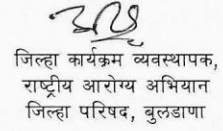 जिल्हा कार्यक्रम व्यवस्थापक,
राष्ट्रीय आरोग्य अभियान
जिल्हा परिषद, बुलडाणा